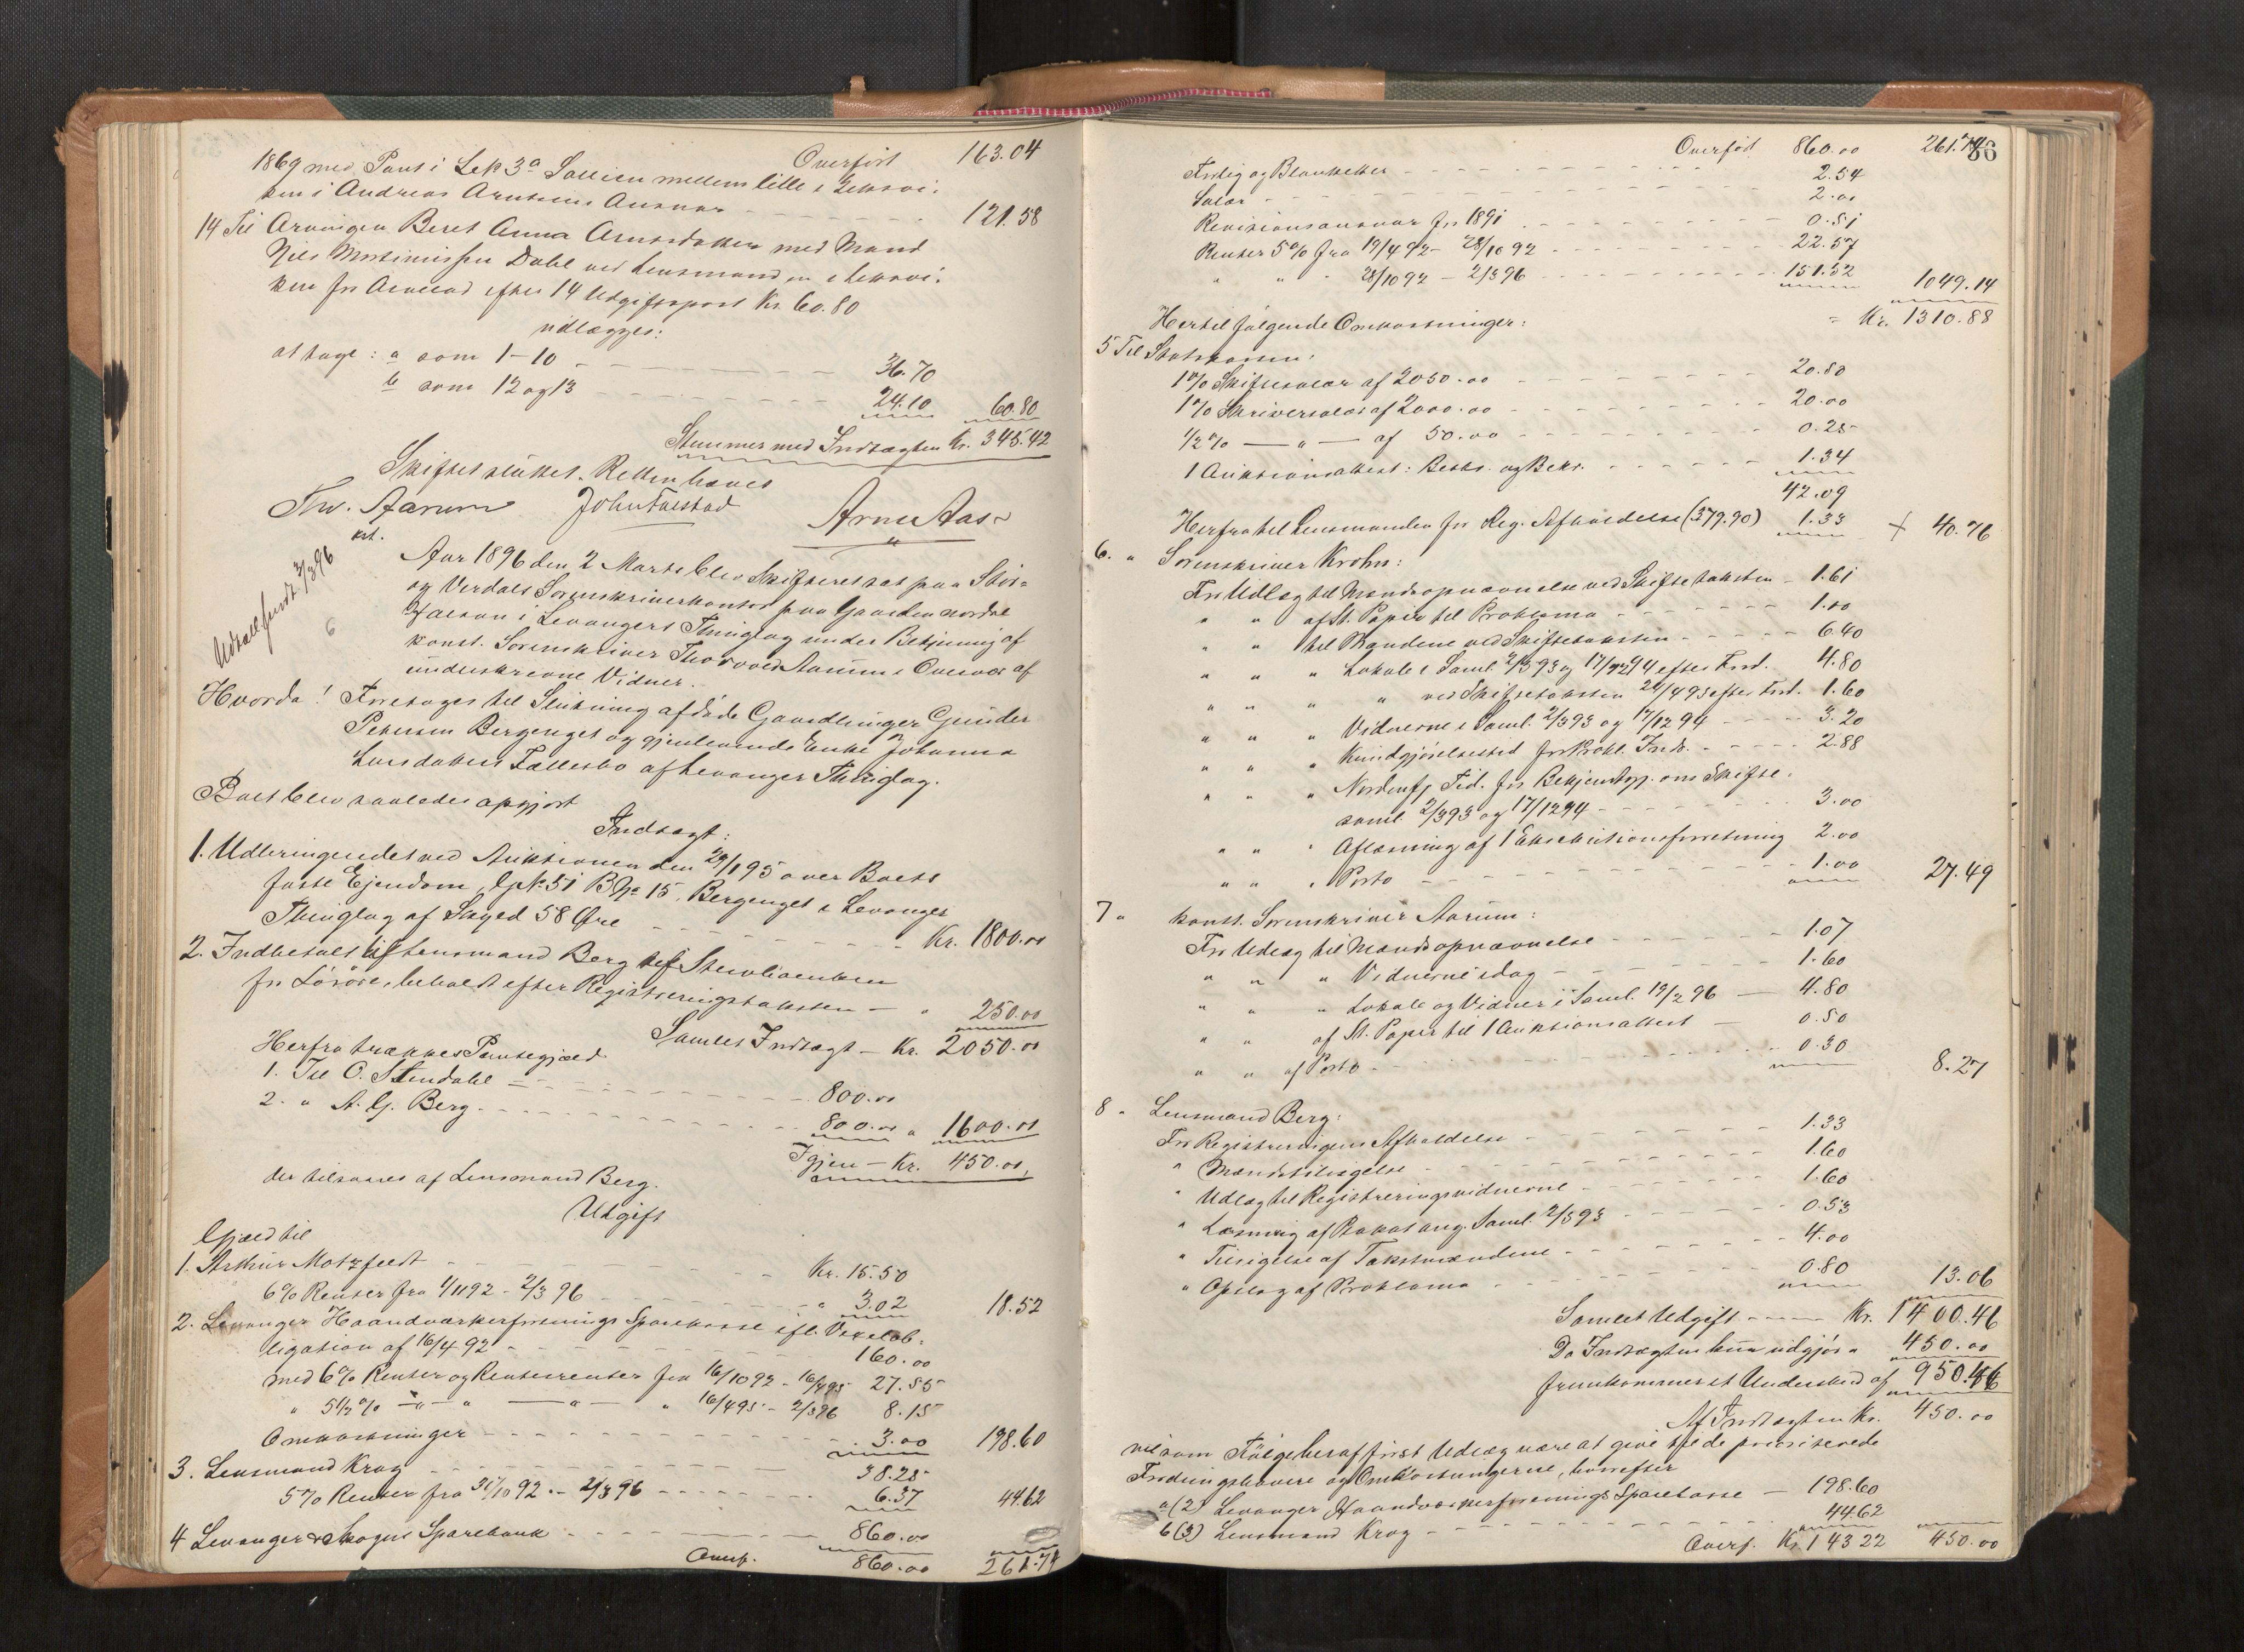 Overført 163.04
1869 med Pant i Lek 3a Sallien mellem lille i Leksvi-
ken i Andreas Arntsens Ansvar 121.58
14 Til Arvingen Beret Anna Arntsdatter med Mand
Nils Martinussen Dahl ved Lensmanden i Leksvi-
ken for Arvelod efter 14 Udgiftspost Kr. 60.80
udlægges:
at tage: a som 1-10 36.70
b som 12 og 13 24.10 60.80
Stemmer med Indtægten Kr. 345.42
Skiftet sluttet. Retten hævet
Thv. Aarum John Falstad Arne Aas
kst.
Udtall sendt 3/3 96
6
Aar 1896 den 2 Marts blev Skifteret sat paa Stør-
og Verdals Sorenskriverkontor paa Gaarden nordre
Halsan i Levangers Thinglag under Betjening af
konst. Sorenskriver Thorvald Aarum i Overvær af
underskrevne Vidner.
Hvorda! Foretoges til Slutning afdøde Gaardbruger Gunder
Petersen Bergenget og gjenlevende Enke Johanna
Larsdatters Fællesbo af Levanger Thinglag.
Boet blev saaledes opgjort
Indtægt:
1. Udbringendet ved Auktionen den 29/1 95 over Boets
faste Ejendom, G.No 51 B.No 15, Bergenget i Levanger
Thinglag af Skyld 58 Øre Kr. 1800.00
2. Indbetalt til Lensmand Berg af Stervboenken
for Løsøre, beholdt efter Registreringstaksten - " 250.00
Samlet Indtægt - Kr. 2050.00
Herfra trækkes Pantegjæld
1. Til O. Stendahl 800.00
2. " A. G. Berg 800.00 " 1600.00
Igjen - Kr. 450.00,
der tilsvares af Lensmand Berg.
Udgift
Gjæld til
1. Arthur Motzfeldt Kr. 15.50
6% Renter fra 1/11 92 - 2/3 96 " 3.02 18.52
2. Levanger Haandværkerforenings Sparekasse ifl. Vexelob-
ligation af 16/4 92 160.00
med 6% Renter og Rentersrenter fra 16/10 92 - 16/4 95 27.55
" 5 1/2 % - " - " - " - " 16/4 95 - 2/3 96 8.15
Omkostninger 3.00 198.60
3. Lensmand Krog 38.25
5% Renter fra 31/10 92 - 2/3 96 6.37 44.62
4 Levanger & Skogns Sparebank 860.00
Overf. 860.00 261.74
Overført 860.00 261.74
86
Forlig og Blanketter 2.54
Salær 2.00
Revisionsansvar for 1891 0.51
Renter 5% fra 19/4 92 - 28/10 92 22.57
" " " 28/10 92 - 2/3 96 151.52 1049.14
= Kr. 1310.88
Hertil følgende Omkostninger:
5 Til Statskassen:
1% Skiftesalær af 2050.00 20.50
1% Skriversalær af 2000.00 20.00
1/2 % - " - af 50.00 0.25
1 Auktionsattest: Beskr. og Bekr. 1.34
42.09
Herfra til Lensmanden for Reg. Afholdelse (379.90) 1.33 + 40.76
6. " Sorenskriver Krohn:
For Udlæg til Mandsopnævnelse ved Skiftetaksten - 1.61
" " af St. Papir til Proklama 1.00
" " til Mændene ved Skiftetaksten 6.40
" " " Lokale i Saml. 2/3 93 og 17/12 94 efter Ford. 4.80
" " " " ved Skiftetaksten 24/4 93 efter Ford. 1.60
" " " Vidnerne i Saml. 2/3 93 og 17/12 94 3.20
" " " Kundgjørelsested for Prokl. Indr. 2.88
" " " Nordenfj Tid. for Bekjendtgj. om Skifte-
saml. 2/3 93 og 17/12 94 3.00
" " " Aflæsning af 1 Eksekutionsforretning 2.00
" " " Porto 1.00 27.49
7 " konst. Sorenskriver Aarum:
For Udlæg til Mandsopnævnelse 1.07
" " " Vidnerne idag 1.60
" " " Lokale og Vidner i Saml. 19/2 96 4.80
" " af St. Papir til 1 Auktionsattest 0.50
" " af Porto 0.30 8.27
8 " Lensmand Berg:
For Registreringens Afholdelse 1.33
" Mændstilsigelse 1.60
" Udlæg til Registreringsvidnerne 1.60
" Læsning af Plakat ang. Saml. 2/3 93 0.53
" Tilsigelse af Takstmændene 4.00
" Opslag af Proklama 0.80 13.06
Samlet Udgift Kr. 1400.46
Da Indtægten kun udgjør " 450.00
fremkommer et Underskud af 950.46
Af Indtægten Kr. 450.00
vil som Følge heraf først Udlæg være at give til de prioriterede
Fordringshavere og Omkostningerne, hvorefter
a (2) Levanger Haandværkerforenings Sparekasse - 198.60
b (3) Lensmand Krog 44.62
Overf. Kr. 143 22 450.00